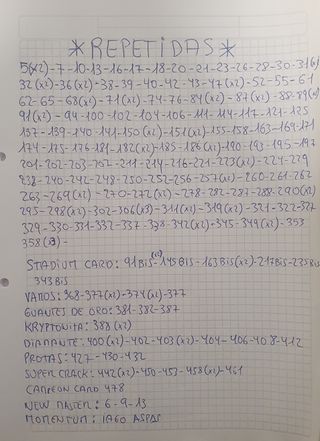 *REPETIDAS*
5(x2)-7-10-13-16-17-18-20-21-23-26-28-30-31(
32(x2)-36(x2)-38-39-40-42-43-47(x2)-52-55-61
62-65-68(x2)-71(x2)-74-76-84(x2)-87(x2)-88-89(
91(x2)-94-100-102-104-106-111-114-117-124-125
137-139-140-141-150(x2)-151(x2)-155-158-163-169-171
174-175-176-181-182(x2)-185-186(x2)-190-193-195-197
201-202-203-207-211-214-216-221-223(x2)-224-229
238-240-242-248-250-252-256-257(x2)-260-261-262
263-269(x2)-270-272(x2)-278-282-287-288-290(x2)
295-298(x2)-302-306(x3)-311(x2)-319(x2)-321-322-327
329-330-331-332-337-338-342(x2)-345-349(x2)-353
358(3)-
STADIUM CARD: 91BIS(x2)-145BIS-163BIS(x2)-217BIS-235BIS
343BIS
VAMOS: 368-377(x2)-374(x2)-377
GUANTES DE ORO: 381-382-387
KRYPTONITA: 388(x2)
DIAMANTE: 400(x2)-402-403(x2)-404-406-408-412
PROTAS: 427-430-432
SUPER CRACK: 442(x2)-450-453-458(x2)-461
CAMPEON CARD 478
NEW MASTER: 6-9-13
MOMENTUM: IAGO ASPAS